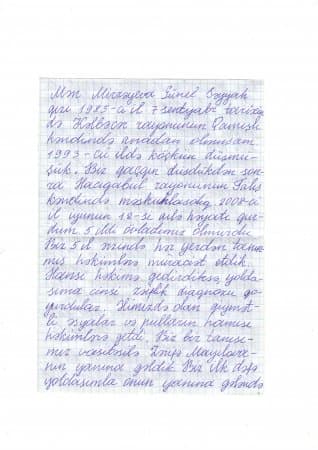 Mən Mirzəyeva Günel Səyyah
qızı 1985-ci il 7 sentyabr tarixin
də Kəlbəcər rayonunun Qamışlı
kəndində anadan olmuşam
1993-cü ildə köçkün düşmü-
şük. Biz qaçqın düşdükdən son-
ra Hacıqabul rayonunun
kəndində məskunlaşdıq 2008-ci
il iyunun 18-si ailə həyatı qur-
dum 5 ildi övladımız olmurdu
Biz 5 il ərzində hər yerdən tanın
mış həkimlərə müraciət etdik.
Hansı həkimə gedirdiksə yolda-
şıma cinsi zəiflik diaqnozu qo-
yurdular. Əlimizdə olan qiymət-
li əşyalar və pulların hamısı
həkimlərə getdi. Biz bir tanışı-
mız vasitəsilə
nın yanına gəldik. Biz ilk dəfə
yoldaşımla onun yanına gələndə